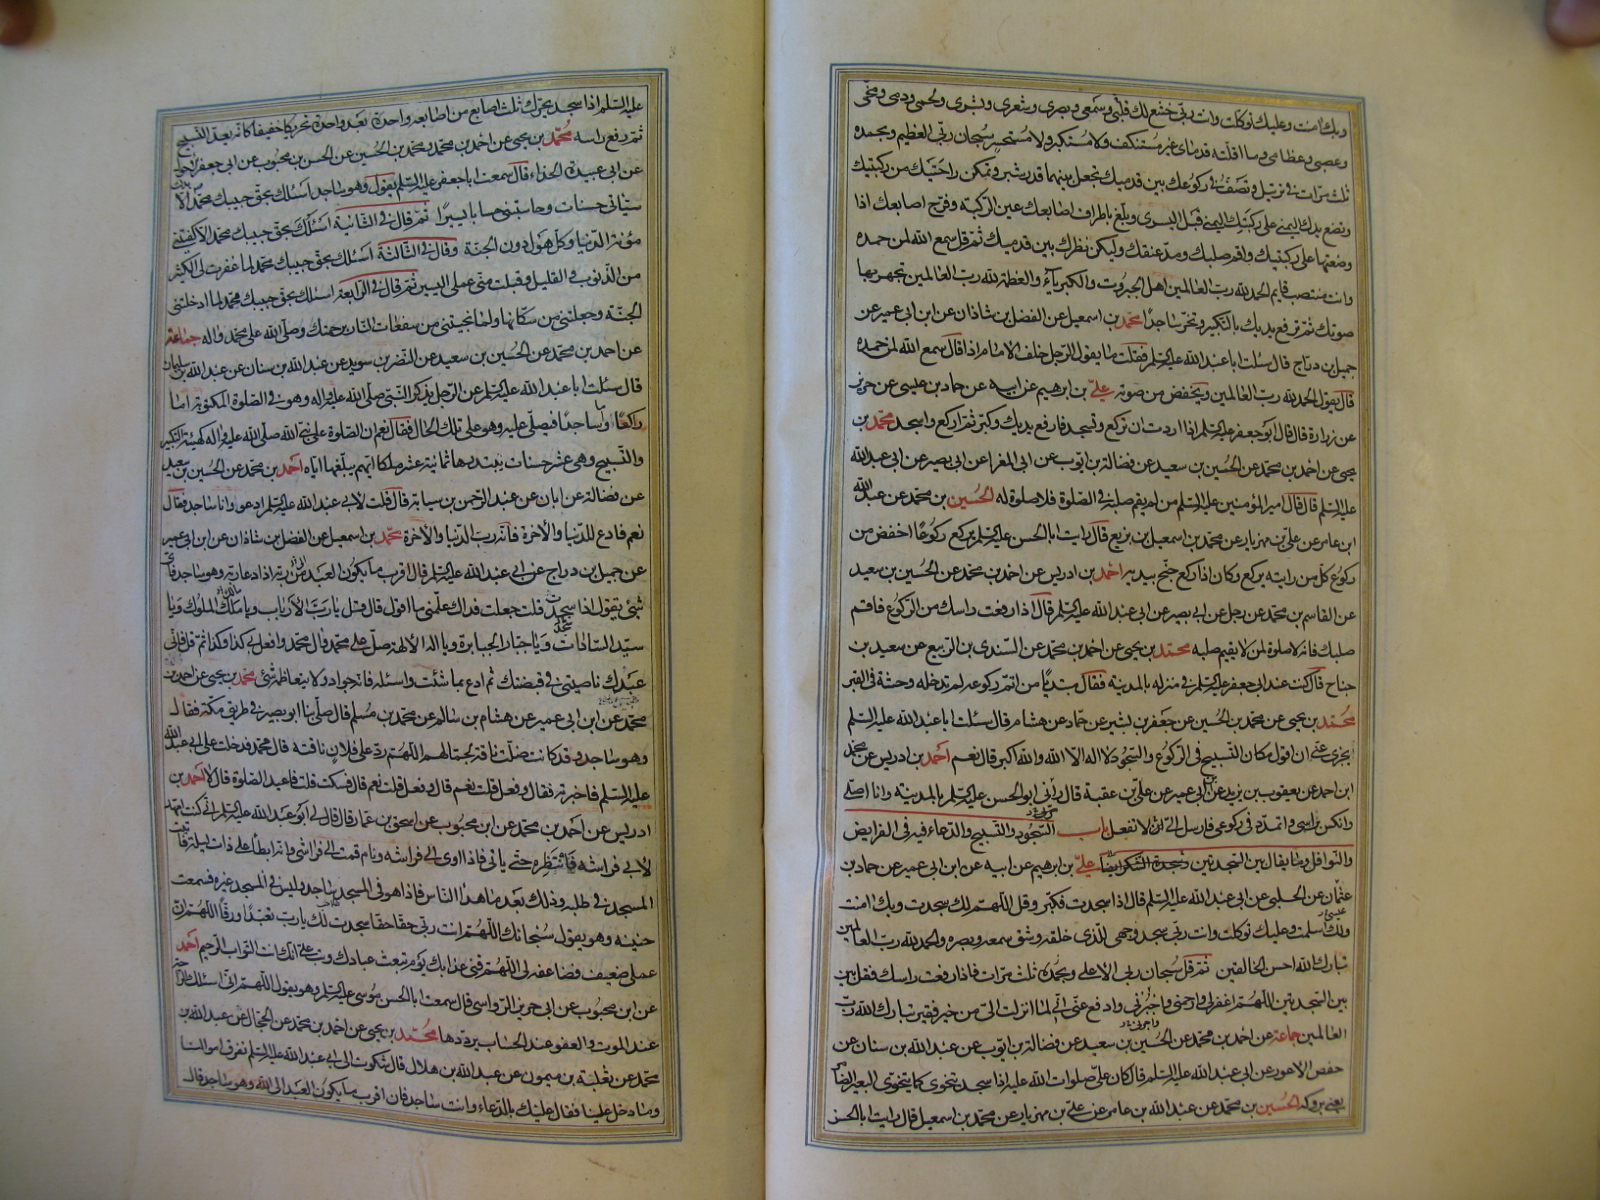 وبك امنت وعليك توكلت وانت ربي خشع لك قلبي وسمعي وبصري وشعري وبشري ولحمي ودمي ومخي
وعصبي وعظامي وما اقلته قدماي غير مستنكف ولا مستكبر ولا مستحسر سبحان ربي العظيم وبحمده
ثلث مرات في ترتيل وتصف في ركوعك بين قدميك تجعل بينهما قدر شبر وتمكن راحتيك من ركبتيك
وتضع يدك اليمنى على ركبتك اليمنى قبل اليسرى وبلغ باطراف اصابعك عين الركبة وفرج اصابعك اذا
وضعتها على ركبتيك واقم صلبك ومد عنقك وليكن نظرك بين قدميك ثم قل سمع الله لمن حمده
وانت منتصب قايم الحمد لله رب العالمين اهل الجبروت والكبرياء والعظمة لله رب العالمين تجهر بها
صوتك ثم ترفع يديك بالتكبير وتخر ساجدا محمد بن اسمعيل عن الفضل بن شاذان عن ابن ابي عمير عن
جميل بن دراج قال سئلت ابا عبد الله عليه السلم فقلت ما يقول الرجل خلف الامام اذا قال سمع الله لمن حمده
قال يقول الحمد لله رب العالمين ويخفض من صوته علي بن ابرهيم عن ابيه عن حماد بن عيسى عن حريز
عن زرارة قال قال ابو جعفر عليه السلم اذا اردت ان تركع وتسجد فارفع يديك وكبر ثم اركع واسجد محمد بن
يحيى عن احمد بن محمد عن الحسين بن سعيد عن فضالة بن ايوب عن ابي المغرا عن ابي بصير عن ابي عبد الله
عليه السلم قال قال امير المؤمنين عليه السلم من لم يقم صلبه في الصلوة فلا صلوة له الحسين بن محمد عن عبد الله
ابن عامر عن علي بن مهزيار عن محمد بن اسمعيل بن بزيع قال رايت ابا الحسن عليه السلم يركع ركوعا اخفض من
ركوع كل من رايته يركع وكان اذا ركع جنح بيديه احمد بن ادريس عن احمد بن محمد عن الحسين بن سعيد
عن القاسم بن محمد عن رجل عن ابي بصير عن ابي عبد الله عليه السلم قال اذا رفعت راسك من الركوع فاقم
صلبك فانه لا صلوة لمن لا يقيم صلبه محمد بن يحيى عن احمد بن محمد عن السندي بن الربيع عن سعيد بن
جناح قال كنت عند ابي جعفر عليه السلم في منزله بالمدينة فقال مبتديا من اتم ركوعه لم تدخله وحشة في القبر
محمد بن يحيى عن محمد بن الحسين عن جعفر بن بشير عن حماد عن هشام قال سئلت ابا عبد الله عليه السلم
يجزي عني ان اقول مكان التسبيح في الركوع والسجود لا اله الا الله والله اكبر قال نعم احمد بن ادريس عن محمد
ابن احمد عن يعقوب بن يزيد عن ابن ابي عمير عن علي بن عقبة قال رآني ابو الحسن عليه السلم بالمدينة وانا اصلي
وانكس براسي واتمدد في ركوعي فارسل الي ان لا تفعل باب السجود والتسبيح والدعاء فيه في الفرايض
والنوافل وما يقال بين السجدتين وسجدة الشكر ايضا علي بن ابرهيم عن ابيه عن ابن ابي عمير عن حماد بن
عثمان عن الحلبي عن ابي عبد الله عليه السلم قال اذا سجدت فكبر وقل اللهم لك سجدت وبك امنت
ولك اسلمت وعليك توكلت وانت ربي سجد وجهي للذي خلقه وشق سمعه وبصره والحمد لله رب العالمين
تبارك الله احسن الخالقين ثم قل سبحان ربي الاعلى وبحمده ثلث مرات فاذا رفعت راسك فقل بين
بين السجدتين اللهم اغفر لي وارحمني واجبرني وادفع عني اني لما انزلت الي من خير فقير تبارك الله رب
العالمين جماعة عن احمد بن محمد عن الحسين بن سعيد عن فضالة بن ايوب عن عبد الله بن سنان عن
حفص الاعور عن ابي عبد الله عليه السلم قال كان علي صلوات الله عليه اذا سجد يتخوى كما يتخوى البعير الضامر
يعني بروكه الحسين بن محمد عن عبد الله بن عامر عن علي بن مهزيار عن محمد بن اسمعيل قال رايت ابا الحسن
عليه السلم اذا سجد يحرك ثلث اصابع من اصابعه واحدة بعد واحدة تحريكا خفيفا كانه يعد التسبيح
ثم رفع راسه محمد بن يحيى عن احمد بن محمد ومحمد بن الحسين عن الحسن بن محبوب عن ابي جعفر الاحول
عن ابي عبيدة الحذاء قال سمعت ابا جعفر عليه السلم يقول وهو ساجد اسئلك بحق حبيبك محمد الا بدلت
سيئاتي حسنات وحاسبتني حسابا يسيرا ثم قال في الثانية اسئلك بحق حبيبك محمد الا كفيتني
مؤنة الدنيا وكل هول دون الجنة وقال في الثالثة اسئلك بحق حبيبك محمد لما غفرت لي الكثير
من الذنوب والقليل وقبلت مني عملي اليسير ثم قال في الرابعة اسئلك بحق حبيبك محمد لما ادخلتني
الجنة وجعلتني من سكانها ولما نجيتني من سفعات النار برحمتك وصلى الله على محمد واله جماعة
عن احمد بن محمد عن الحسين بن سعيد عن النضر بن سويد عن عبد الله بن سنان عن عبد الله بن سليمان
قال سئلت ابا عبد الله عليه السلم عن الرجل يذكر النبي صلى الله عليه واله وهو في الصلوة المكتوبة اما
راكعا واما ساجدا فيصلي عليه وهو على تلك الحال فقال نعم ان الصلوة على نبي الله صلى الله عليه واله كهيئة التكبير
والتسبيح وهي عشر حسنات يبتدرها ثمانية عشر ملكا ايهم يبلغها اياه احمد بن محمد عن الحسين بن سعيد
عن فضالة عن ابان عن عبد الرحمن بن سيابة قال قلت لابي عبد الله عليه السلم ادعو وانا ساجد فقال
نعم فادع للدنيا والاخرة فانه رب الدنيا والاخرة محمد بن اسمعيل عن الفضل بن شاذان عن ابن ابي عمير
عن جميل بن دراج عن ابي عبد الله عليه السلم قال اقرب ما يكون العبد من ربه اذا دعا ربه وهو ساجد فاي
شئ تقول اذا سجدت قلت جعلت فداك علمني ما اقول قال قل يا رب الارباب ويا ملك الملوك ويا
سيد السادات ويا جبار الجبابرة ويا اله الالهة صل على محمد وال محمد وافعل بي كذا وكذا ثم قل فاني
عبدك ناصيتي في قبضتك ثم ادع بما شئت واسئله فانه جواد ولا يتعاظمه شئ محمد بن يحيى عن احمد بن
محمد عن ابن ابي عمير عن هشام بن سالم عن محمد بن مسلم قال صلى بنا ابو بصير في طريق مكة فقال
وهو ساجد وقد كانت ضلت ناقة لجمالهم اللهم رد على فلان ناقته قال محمد فدخلت على ابي عبد الله
عليه السلم فاخبرته فقال وفعل قلت نعم قال وفعل قلت نعم قال فسكت قلت فاعيد الصلوة قال لا احمد بن
ادريس عن احمد بن محمد عن ابن محبوب عن اسحق بن عمار قال قال لي ابو عبد الله عليه السلم اني كنت امهد
لابي فراشه فانتظره حتى ياتي فاذا اوى الى فراشه ونام قمت الى فراشي وانه ابطأ علي ذات ليلة فاتيت
المسجد في طلبه وذلك بعد ما هدأ الناس فاذا هو في المسجد ساجد وليس في المسجد غيره فسمعت
حنينه وهو يقول سبحانك اللهم انت ربي حقا حقا سجدت لك يا رب تعبدا ورقا اللهم ان
عملي ضعيف فضاعفه لي اللهم قني عذابك يوم تبعث عبادك وتب علي انك انت التواب الرحيم احمد
عن ابن محبوب عن ابي جرير الرواسي قال سمعت ابا الحسن موسى عليه السلم وهو يقول اللهم اني اسئلك الراحة
عند الموت والعفو عند الحساب يرددها محمد بن يحيى عن احمد بن محمد عن الحجال عن عبد الله بن
محمد عن ثعلبة بن ميمون عن عبد الله بن هلال قال شكوت الى ابي عبد الله عليه السلم تفرق اموالنا
وما دخل علينا فقال عليك بالدعاء وانت ساجد فان اقرب ما يكون العبد الى الله وهو ساجد قال